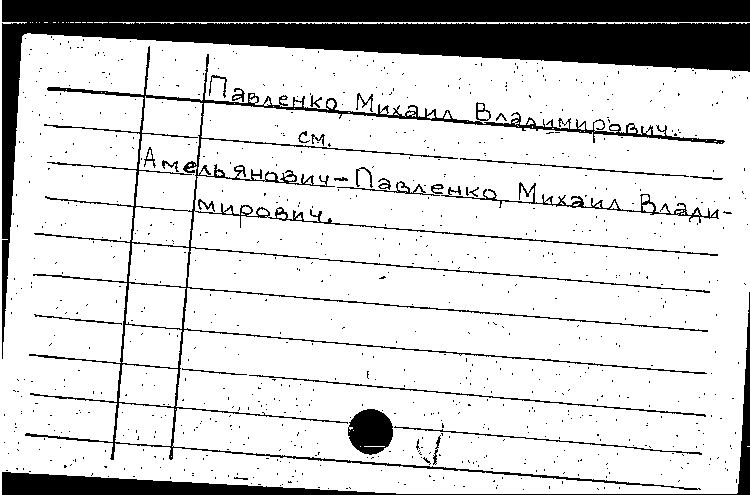 Павленко, Михаил Владимирович.
см.
Амельянович-Павленко, Михаил Влади-
мирович.